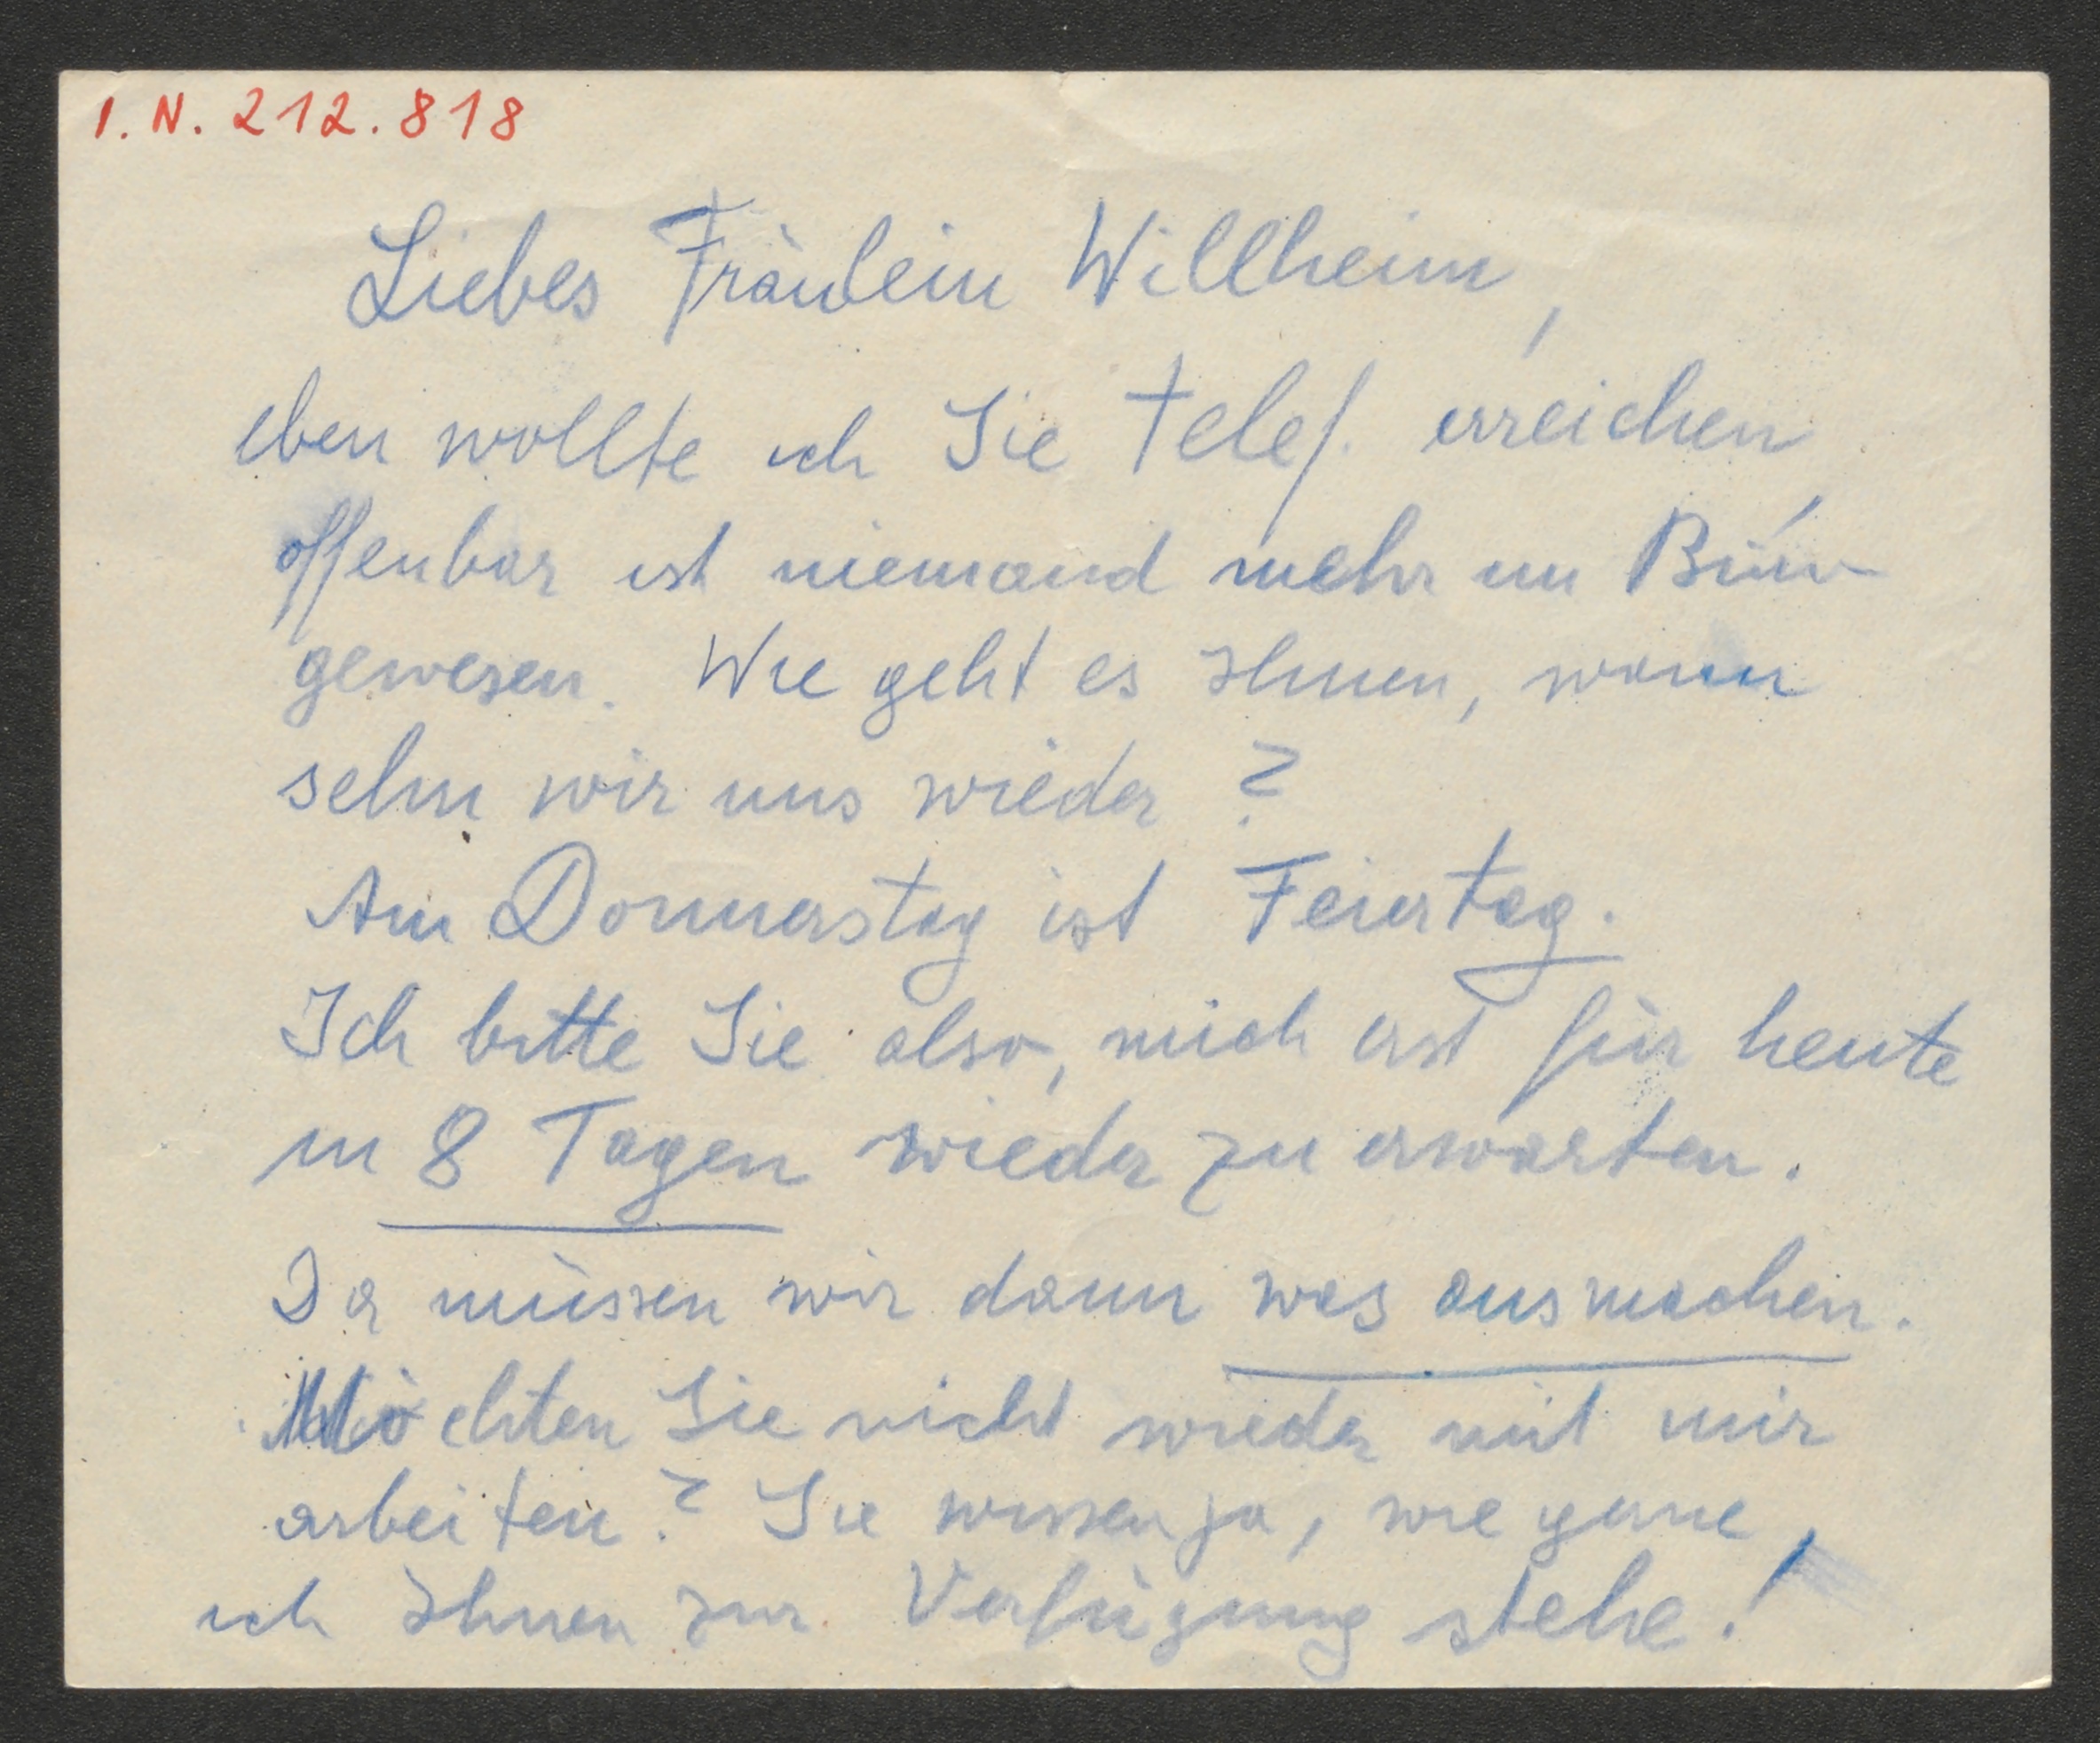 I. N. 212.818
Liebes Fräulein Willheim,
eben wollte ich Sie telef. erreichen,
offenbar ist niemand mehr im Büro
gewesen. Wie geht es Ihnen, wann
sehn wir uns wieder?
Am Donnerstag ist Feiertag.
Ich bitte Sie also, mich erst für heute
in 8 Tagen wieder zu erwarten.
Da müssen wir dann was ausmachen.
Möchten Sie nicht wieder mit mir
arbeiten? Sie wissen ja, wie gerne
ich Ihnen zur Verfügung stehe!